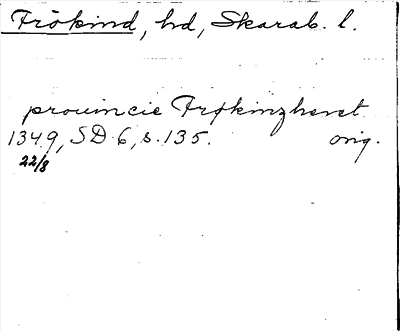 Frökind, hd, Skarab. l.
provincie Frøkinzheret
1349, SD 6, s. 135. orig.
22/8